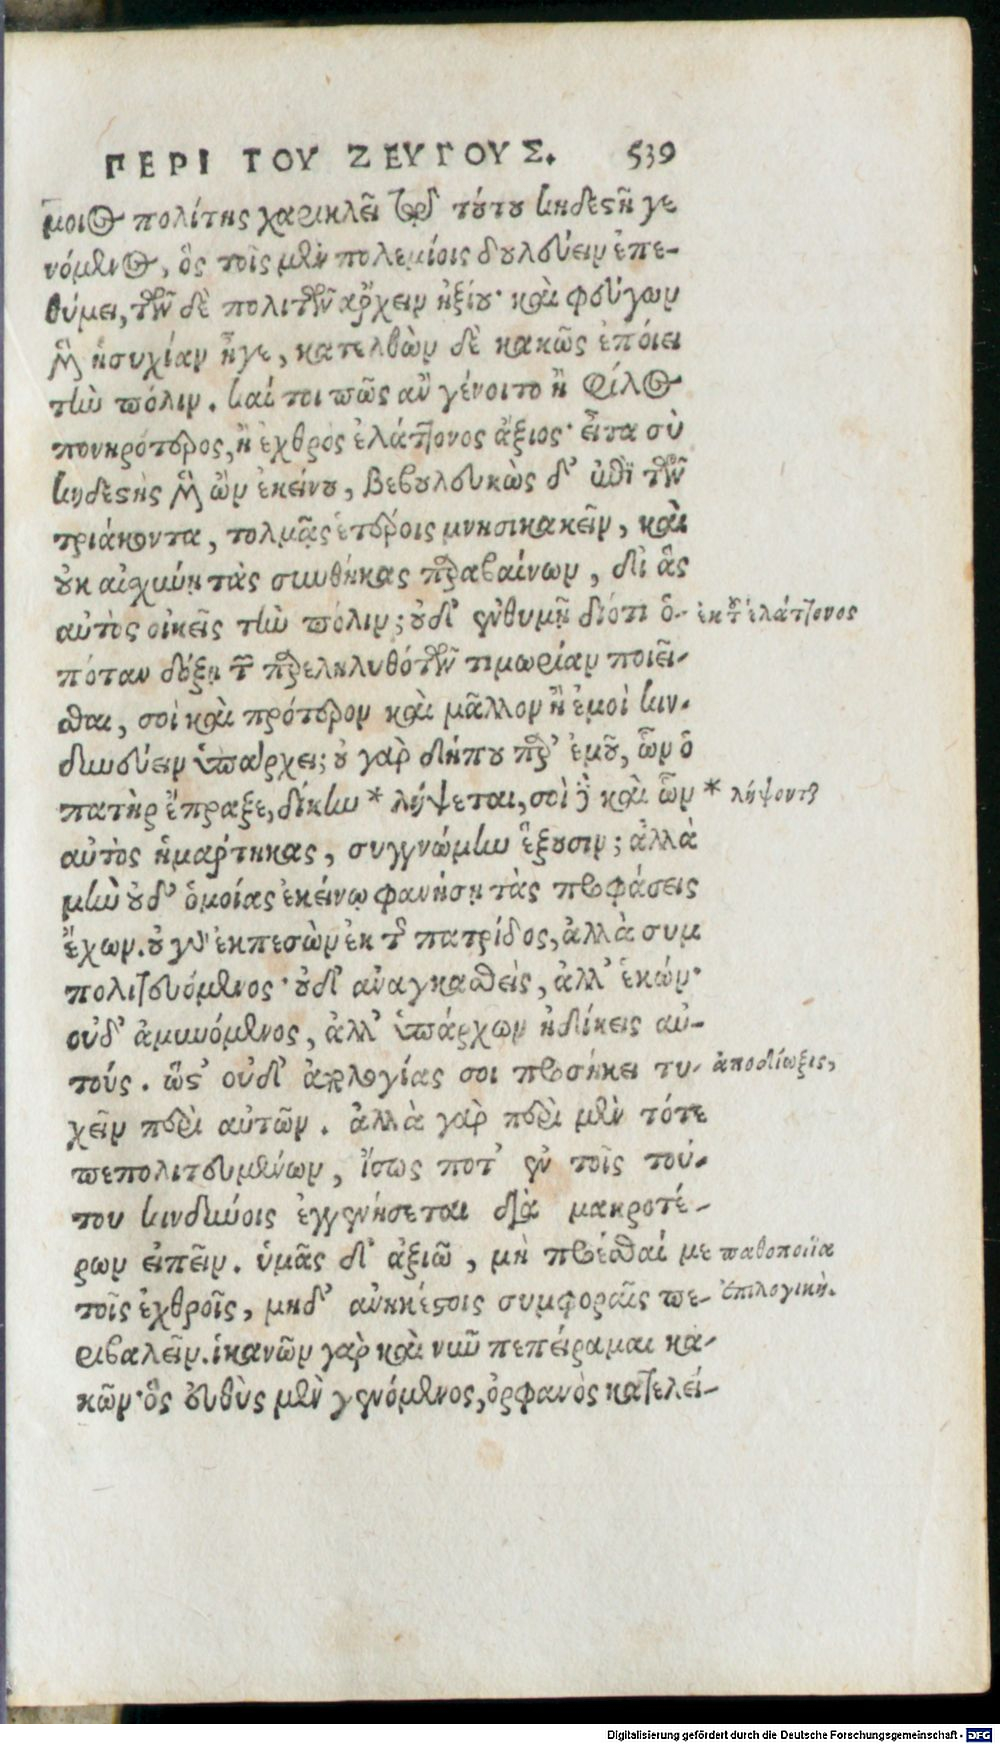 ΠΕΡΙ ΤΟΥ ΖΕΥΓΟΥΣ. 539
μοιος πολίτης χαρικλεῖ τῷ τούτου κηδεστῇ γε
νόμενος, ὃς τοῖς μὲν πολεμίοις δουλεύειν ἐπε-
θύμει, τῶν δὲ πολιτῶν ἄρχειν ἠξίου· καὶ φεύγων
μὲν ἡσυχίαν ἦγε, κατελθὼν δὲ κακῶς ἐπόιει
τὴν πόλιν. καί τοι πῶς ἂν γένοιτο ἢ φίλος
πονηρότερος, ἢ ἐχθρὸς ἐλάττονος ἄξιος· εἶτα σὺ
κηδεστὴς μὲν ὢν ἐκείνου, βεβουλευκὼς δ' ἐπὶ τῶν
τριάκοντα, τολμᾷς ἑτέροις μνησικακεῖν, καὶ
οὐκ αἰσχύνῃ τὰς συνθήκας παραβαίνων, δι' ἃς
αὐτὸς οἰκεῖς τὴν πόλιν; οὐδ' ἐνθυμῇ διότι ὁ- ἐκ τοῦ ἐλάττονος
πόταν δόξῃ τῶν παρεληλυθότων τιμωρίαν ποιεῖ-
σθαι, σοὶ καὶ πρότερον καὶ μᾶλλον ἢ ἐμοὶ κιν-
δυνεύειν ὑπάρχει; οὐ γὰρ δήπου παρ' ἐμοῦ, ὧν ὁ
πατὴρ ἔπραξε, δίκην * λήψεται, σοὶ δὲ καὶ ὧν * λήψονται
αὐτὸς ἡμάρτηκας, συγγνώμην ἕξουσιν; ἀλλὰ
μὴν οὐδ' ὁμοίας ἐκείνῳ φανήσῃ τὰς προφάσεις
ἔχων. οὐ γὰρ ἐκπεσὼν ἐκ τῆς πατρίδος, ἀλλὰ συμ
πολιτευόμενος· οὐδ' ἀναγκασθεὶς, ἀλλ' ἑκών·
οὐδ' ἀμυνόμενος, ἀλλ' ὑπάρχων ἠδίκεις αὐ-
τούς. ὥστ' οὐδ' ἀπολογίας σοι προσήκει τυ- ἀποδίωξις,
χεῖν παρὰ αὐτῶν. ἀλλὰ γὰρ περὶ μὲν τότε
πεπολιτευμένων, ἴσως ποτ' ἐν τοῖς τού-
του κινδύνοις ἐγγενήσεται διὰ μακροτέ-
ρων εἰπεῖν. ὑμᾶς δ' ἀξιῶ, μὴ προέσθαί με παθοποιΐα
τοῖς ἐχθροῖς, μηδ' ἀνηκέστοις συμφοραῖς πε- ἐπιλογική.
ριβαλεῖν. ἱκανῶν γὰρ καὶ νῦν πεπείραμαι κα-
κῶν· ὃς εὐθὺς μὲν γενόμενος, ὀρφανὸς κατελεί-
Digitalisierung gefördert durch die Deutsche Forschungsgemeinschaft - DFG